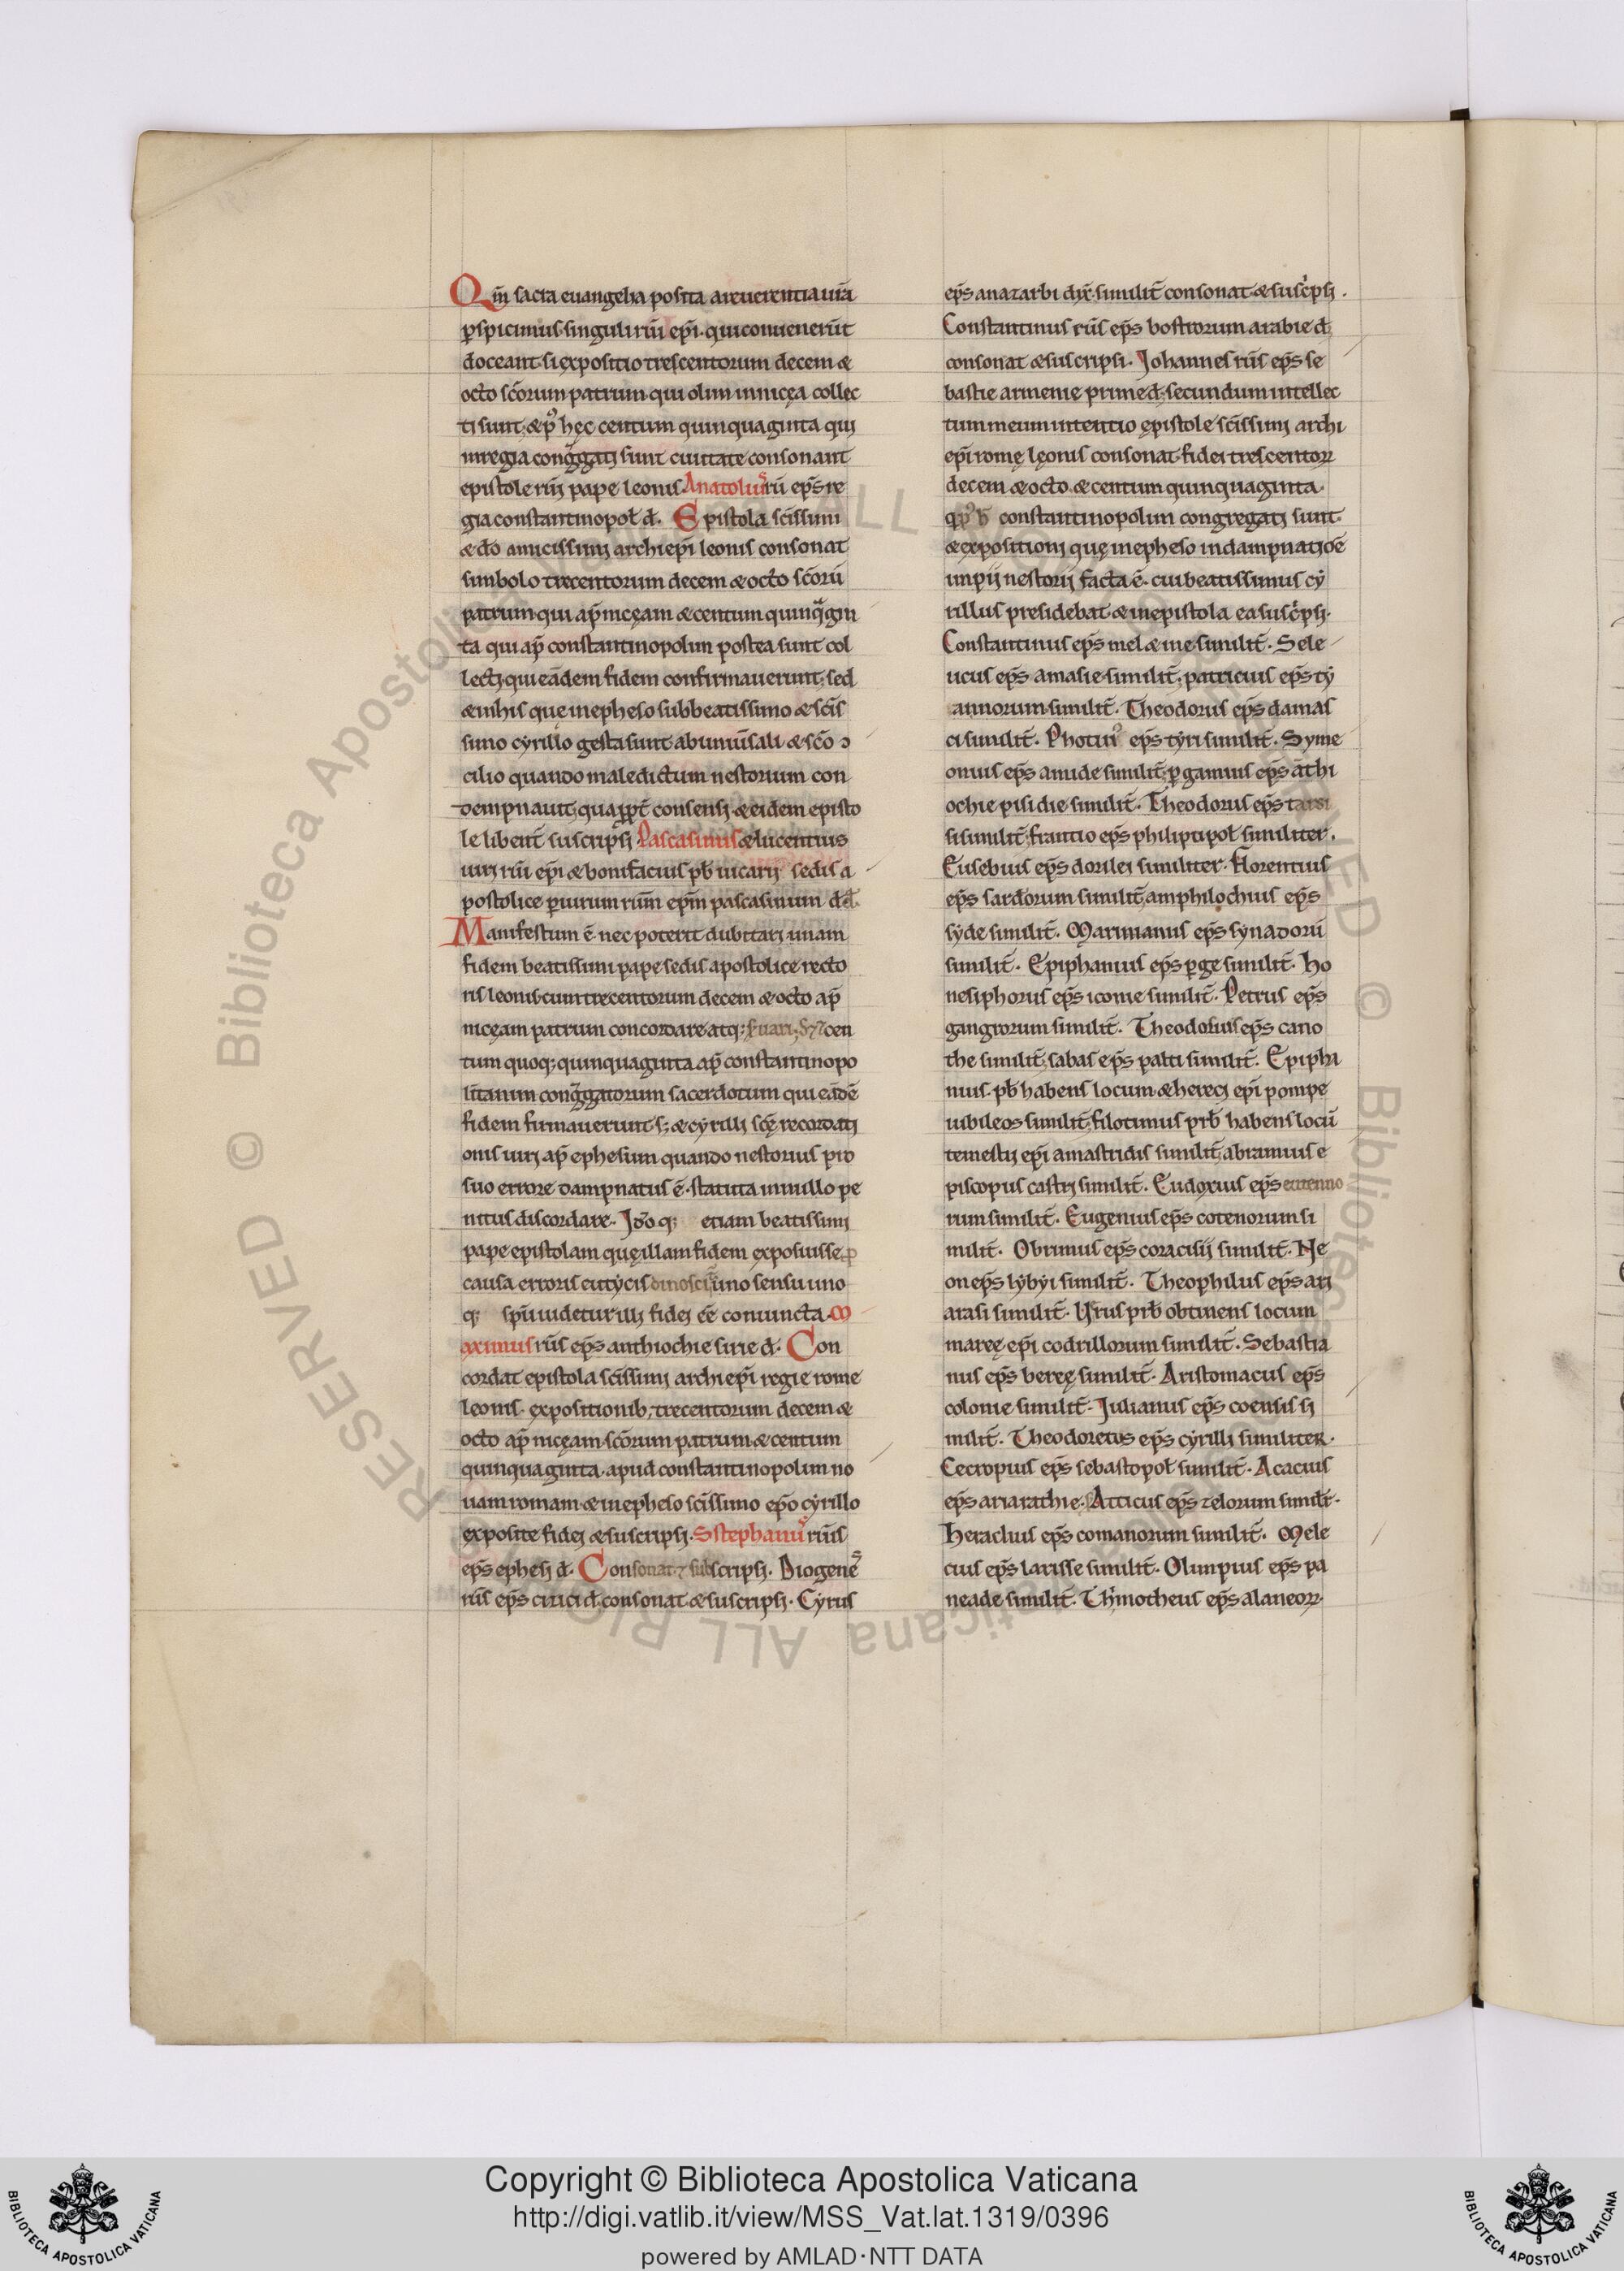 Qm̄ sacra euangelia posita a reuerentia ura̅
ꝑspicimus singuli rm̄i ep̄i · qui conuenerūt
doceant si expositio trescentorum decem &
octo sc̄orum patrum qui olim in nicęa collec
ti sunt & p9 hęc centum quinquaginta qui
in regia cong̃gati sunt ciuitate consonant
epistole rm̄i pape leonis Anatolius rm̄ ep̄s re
gia constantinopol̄ d̄. Epistola sc̄issimi
& d̄o amicissimi archiep̄i leonis consonat
simbolo trecentorum decem & octo sc̄orū
patrum qui ap̄ nicęam & centum quinq̃gin
ta qui ap̄ constantinopolim postea sunt col
lecti qui eādem fidem confirmauerunt; sed
& in his que in epheso sub beatissimo & sc̄is
simo cyrillo gesta sunt ab uniu̅sali & sc̄o ɔ
cilio quando maledictum nestorium con
dempnauit; qua ꝓpt̄ consensi & eidem episto
le libent̄ suscripsi Pascasinus & lucentius
uiri rm̄i ep̄i & bonifacius pb̄ uicarij sedis a
postolice ꝑ uirum rm̄m ep̄m pascasinum dd̄.
Manifestum ē nec poterit dubitari unam
fidem beatissimi pape sedis apostolice recto
ris leonis cum trecentorum decem & octo ap̄
nicęam patrum concordare atq; s̄uari; S; ⁊ cen
tum quoq; quinquaginta ap̄ constantinopo
litanum cong̃gatorum sacerdotum qui eādē
fidem firmauerunt s; & cyrilli sc̄ę recordati
onis uiri ap̄ ephesum quando nestorius pro
suo errore dampnatus ē · statuta in nullo pe
nitus discordare. Id̄o q; etiam beatissimi
pape epistolam quę illam fidem exposuisse ꝓ
causa erroris eutycis dinoscit̃ uno sensu uno
q; sp̄u uidetur illi fidei eē coniuncta. M
aximus rm̄s ep̄s anthiochie sirie d̄. Con
cordat epistola sc̄issimi archiep̄i regie rome
leonis · expositionib; trecentorum decem &
octo ap̄ nicęam sc̄orum patrum & centum
quinquaginta · apud constantinopolim no
uam romam & in epheso sc̄issimo ep̄o cyrillo
exposite fidei & suscripsi. Sstephanus rm̄s
ep̄s ephesi d̄. Consonat ⁊ subscripsi. Diogenēs
rm̄s ep̄s cizici d̄ consonat & suscripsi · Cyrus
ep̄s anazarbi dix̄ · similit̄ consonat & susc̓psi.
Constantinus rm̄s ep̄s bostrorum arabie d̄;
consonat & suscripsi. Johannes rm̄s ep̄s se
bastie armenie prime d̄; secundum intellec
tum meum intentio epistole sc̄issimi archi
ep̄i romę leonis consonat fidei trescentoꝝ
decem & octo & centum quinquaginta ·
q p9 h̄ constantinopolim congregati sunt
& expositioni quę in epheso in dampnatiōē
impij nestorij facta ē · cui beatissimus cy
rillus presidebat & in epistola ea susc̓psi.
Constantinus ep̄s mel & ine similit̄. Sele
ucus ep̄s amasie similit̄; patricius ep̄s ty
annorum similit̄. Theodorus ep̄s damas
ci similit̄. Photin9 ep̄s tyri similit̄. Syme
onius ep̄s amide similit̄; ꝑgamius ep̄s āthi
ochie pisidie similit̄. Theodorus ep̄s tarsi
si similit̄; frantio ep̄s philiptipol̄ similiter.
Eusebius ep̄s dorilei similiter. Florentius
ep̄s sardorum similit̄; amphilochius ep̄s
syde similit̄. Marinianus ep̄s synadorū
similit̄. Epiphanius ep̄s ꝑge similit̄. Ho
nesiphorus ep̄s iconie similit̄. Petrus ep̄s
gangrorum similit̄. Theodolus ep̄s cano
the similit̄; sabas ep̄s palti similit̄. Epipha
nius · pb̄ habens locum & hereci ep̄i pompe
iubileos similit̄; filotimus prb̄ habens locū
temestij ep̄i amastridis similit̄; abramius e
piscopus castri similit̄. Eudoxius ep̄s eutenno
rum similit̄. Eugenius ep̄s cotenorum si
milit̄. Obrimus ep̄s coracisij similit̄. Ne
on ep̄s lybyi similit̄. Theophilus ep̄s ari
arasi similit̄. Yrus prb̄ obtinens locum
mareę ep̄i codrillorum similit̄. Sebastia
nus ep̄s bereę similit̄. Aristomacus ep̄s
colonie similit̄. Julianus ep̄s coensis si
milit̄. Theodoretus ep̄s cyrilli similiter.
Cecropius ep̄s sebastopol̄ similit̄. Acacius
ep̄s ariarathie. Atticus ep̄s zelorum similit̄.
Heraclius ep̄s comanorum similit̄. Mele
cius ep̄s larisse similit̄. Olimpius ep̄s pa
neade similit̄. Thimotheus ep̄s alaneoꝝ.
Copyright © Biblioteca Apostolica Vaticana
http://digi.vatlib.it/view/MSS_Vat.lat.1319/0396
powered by AMLAD·NTT DATA